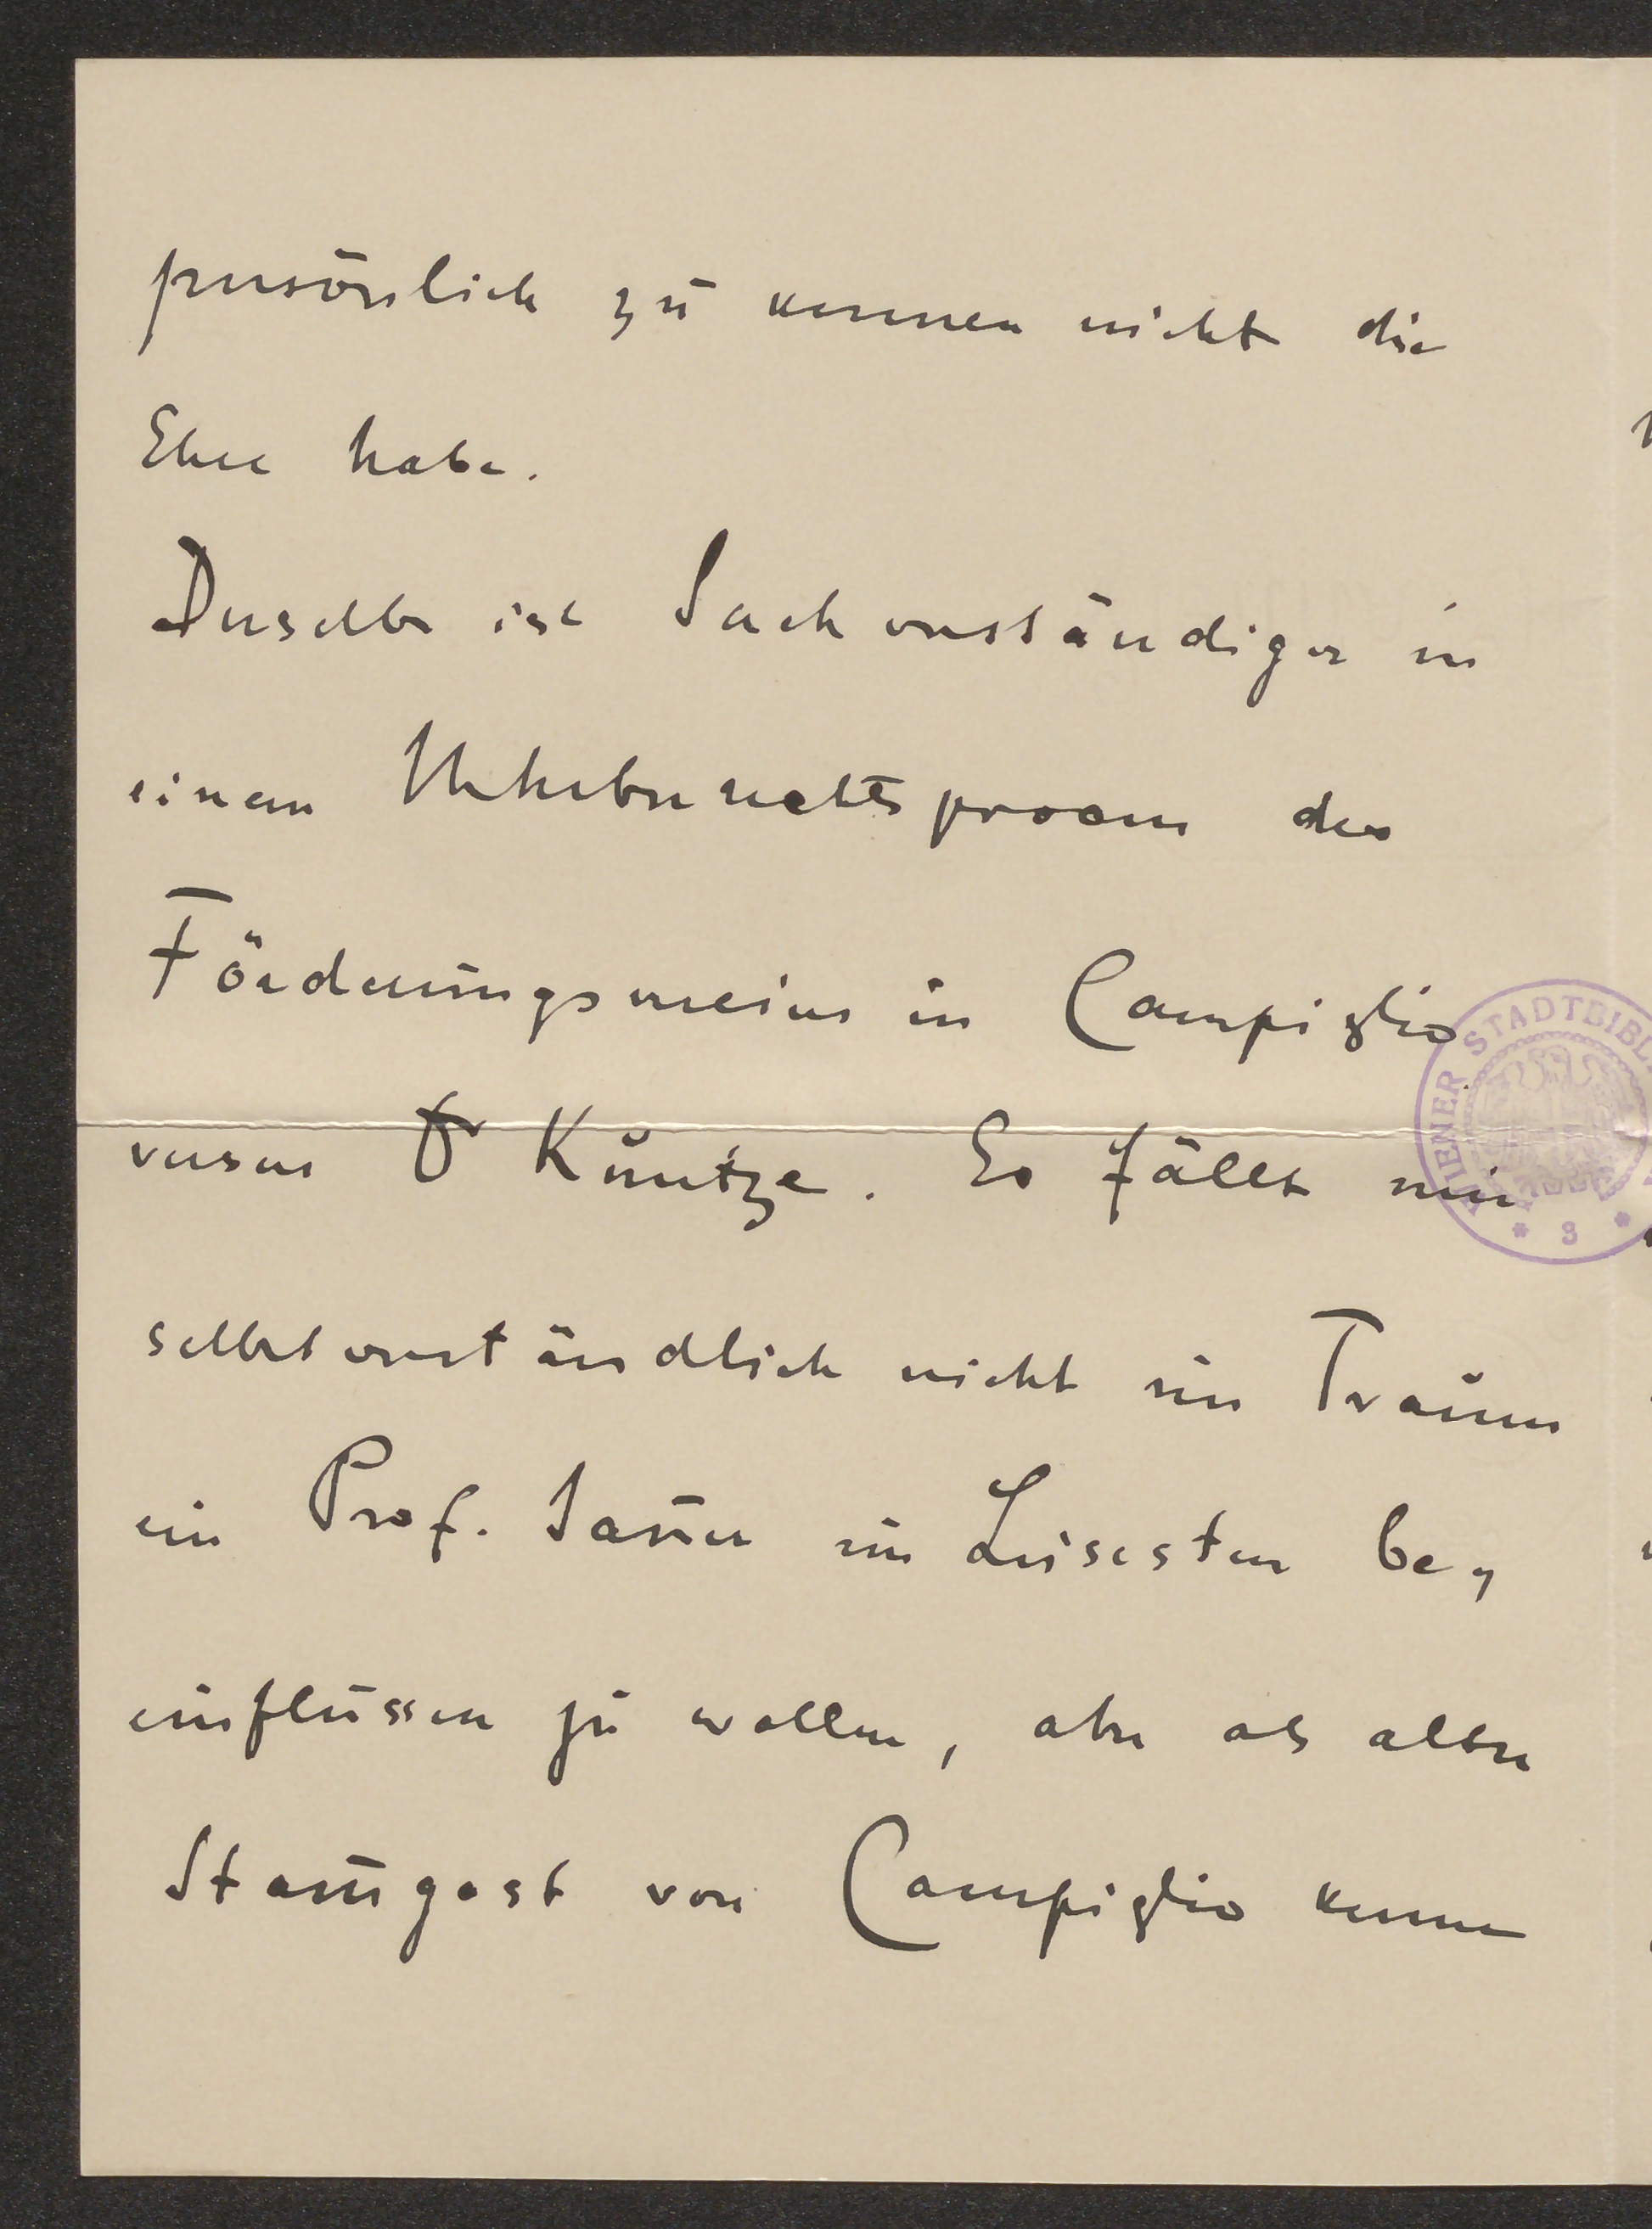 persönlich zu kennen nicht die
Ehre habe.
Derselbe ist Sachverständiger in
einem Urheberrechtsprocess des
Förderungsvereins in Campiglio
versus Dr Kuntze. Es fällt mir
selbstverständlich nicht im Traum
ein Prof. Sauer im Leisesten be-
einflussen zu wollen, aber als alter
Stam̅gast von Campiglio kenne
WIENER STADTBIBL
* 3 *